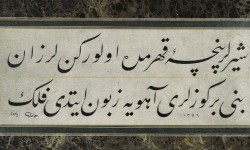 شیرلر پنچهٔ قهرمدن اولورکن لرزان
بنی بر کوزلری آهویه زبون ایتدی فلک